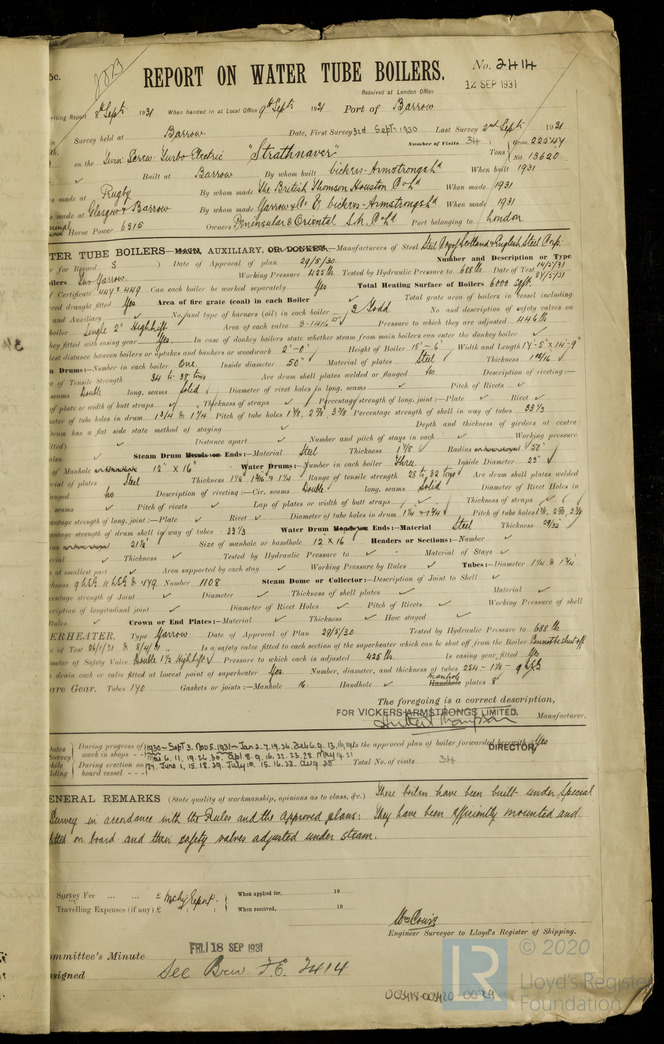 REPORT ON WATER TUBE BOILERS.
No. 2414
Received at London Office 12 SEP 1931
8th Sept 1931 When handed in at Local Office 9th Sept 1931 Port of Barrow
Survey held at Barrow Date, First Survey 3rd Sept 1930 Last Survey 2nd Sept 1931
Number of Visits 34
on the Twin Screw Turbo Electric "Strathnaver" Tons Gross 22547
Net 13620
Built at Barrow By whom built Vickers-Armstrongs Ld When built 1931
made at Rugby By whom made The British Thomson Houston Co Ld When made 1931
made at Glasgow & Barrow By whom made Yarrow & Co & Vickers-Armstrongs Ld When made 1931
Horse Power 6315 Owners Peninsular & Oriental S.N. Co Ld Port belonging to London
WATER TUBE BOILERS—MAIN, AUXILIARY, OR DONKEY.—Manufacturers of Steel
for Record S Date of Approval of plan 29/5/30 Number and Description or Type
Boilers Two Yarrow Working Pressure 425 lb Tested by Hydraulic Pressure to 688 lb Date of Test 14/5/31
27/5/31
Certificate 447 & 449 Can each boiler be worked separately Yes Total Heating Surface of Boilers 6000 sq ft.
forced draught fitted Yes Area of fire grate (coal) in each Boiler ✓ Total grate area of boilers in vessel including
and Auxiliary ✓ No. and type of burners (oil) in each boiler 3 Todd No and description of safety valves on
boiler Single 2" High lift Area of each valve 3.1416 Pressure to which they are adjusted 446 lb
they fitted with easing gear Yes In case of donkey boilers state whether steam from main boilers can enter the donkey boiler ✓
distance between boilers or uptakes and bunkers or woodwork 2'-0" Height of Boiler 15'-6" Width and Length 17'-5" x 14'-9"
Drums:—Number in each boiler One Inside diameter 50" Material of plates Steel Thickness
of Tensile Strength 34 to 38 tons Are drum shell plates welded or flanged No Description of riveting:—
seams Double long. seams Solid Diameter of rivet holes in long. seams ✓ Pitch of Rivets ✓
of plate or width of butt straps ✓ Thickness of straps ✓ Percentage strength of long. joint:—Plate ✓ Rivet ✓
of tube holes in drum 1 3/4 & 1 1/4 Pitch of tube holes Percentage strength of shell in way of tubes 33 1/3
Drum has a flat side state method of staying ✓ Depth and thickness of girders at centre
Distance apart ✓ Number and pitch of stays in each ✓ Working pressure
Steam Drum Heads or Ends:—Material Steel Thickness 1 1/8 Radius or how stayed 50"
of Manhole or Handhole 12" x 16" Water Drums:—Number in each boiler Three Inside Diameter 23"
of plates Steel Thickness Range of tensile strength 28 to 32 tons Are drum shell plates welded
flanged No Description of riveting:—Cir. seams Double long. seams Solid Diameter of Rivet Holes in
seams ✓ Pitch of rivets ✓ Lap of plates or width of butt straps ✓ Thickness of straps ✓
strength of long. joint:—Plate ✓ Rivet ✓ Diameter of tube holes in drum 1 1/4 & 1 3/4 Pitch of tube holes
strength of drum shell in way of tubes 33 1/3 Water Drum Heads or Ends:—Material Steel Thickness 29/32"
or how stayed 21 1/2" Size of manhole or handhole 12 x 16 Headers or Sections:—Number ✓
Thickness ✓ Tested by Hydraulic Pressure to ✓ Material of Stays ✓
at smallest part ✓ Area supported by each stay ✓ Working Pressure by Rules ✓ Tubes:—Diameter 1 1/4 & 1 3/4
Number 1108 Steam Dome or Collector:—Description of Joint to Shell ✓
strength of Joint ✓ Diameter ✓ Thickness of shell plates ✓ Material ✓
description of longitudinal joint ✓ Diameter of Rivet Holes ✓ Pitch of Rivets ✓ Working Pressure of shell
Rules ✓ Crown or End Plates:—Material ✓ Thickness ✓ How stayed ✓
SUPERHEATER. Type Yarrow Date of Approval of Plan 29/5/30 Tested by Hydraulic Pressure to 688 lb
of Test 26/1/31 & 8/4/31 Is a safety valve fitted to each section of the superheater which can be shut off from the Boiler
of Safety Valve Double 1 1/2 High lift Pressure to which each is adjusted 425 lb Is easing gear fitted Yes
drain cock or valve fitted at lowest point of superheater Yes Number, diameter, and thickness of tubes 224 - 1 1/8 - 9
Spare Gear. Tubes 140 Gaskets or joints:—Manhole 16 Handhole ✓ Manhole
Handhole plates 8
The foregoing is a correct description,
FOR VICKERS ARMSTRONGS LIMITED,
DIRECTOR Manufacturer.
During progress of work in shops - - 1930 - Sept 3. Nov 5. 1931 - Jan 2. 7. 19. 26. Feb 6. 9. 13. Is the approved plan of boiler forwarded herewith Yes
Mar 6. 11. 19. 26. 30. Apl 8. 9. 16. 22. 23. 28. May 14. 21
During erection on board vessel - - - 27. June 1. 15. 18. 29. July 10. 15. 16. 28. Aug 28 Total No. of visits 34
GENERAL REMARKS (State quality of workmanship, opinions as to class, &c.) These boilers have been built under Special
Survey in accordance with the Rules and the approved plans. They have been efficiently mounted and
fitted on board and their safety valves adjusted under steam.
Survey Fee ... ... £ Mchy Report. When applied for, 19
Travelling Expenses (if any) £ When received, 19
Engineer Surveyor to Lloyd's Register of Shipping.
Committee's Minute FRI. 18 SEP 1931
Assigned See Brw. F.E. 2414
© 2020
LR
Lloyd's Register
Foundation
003418-003420-0039